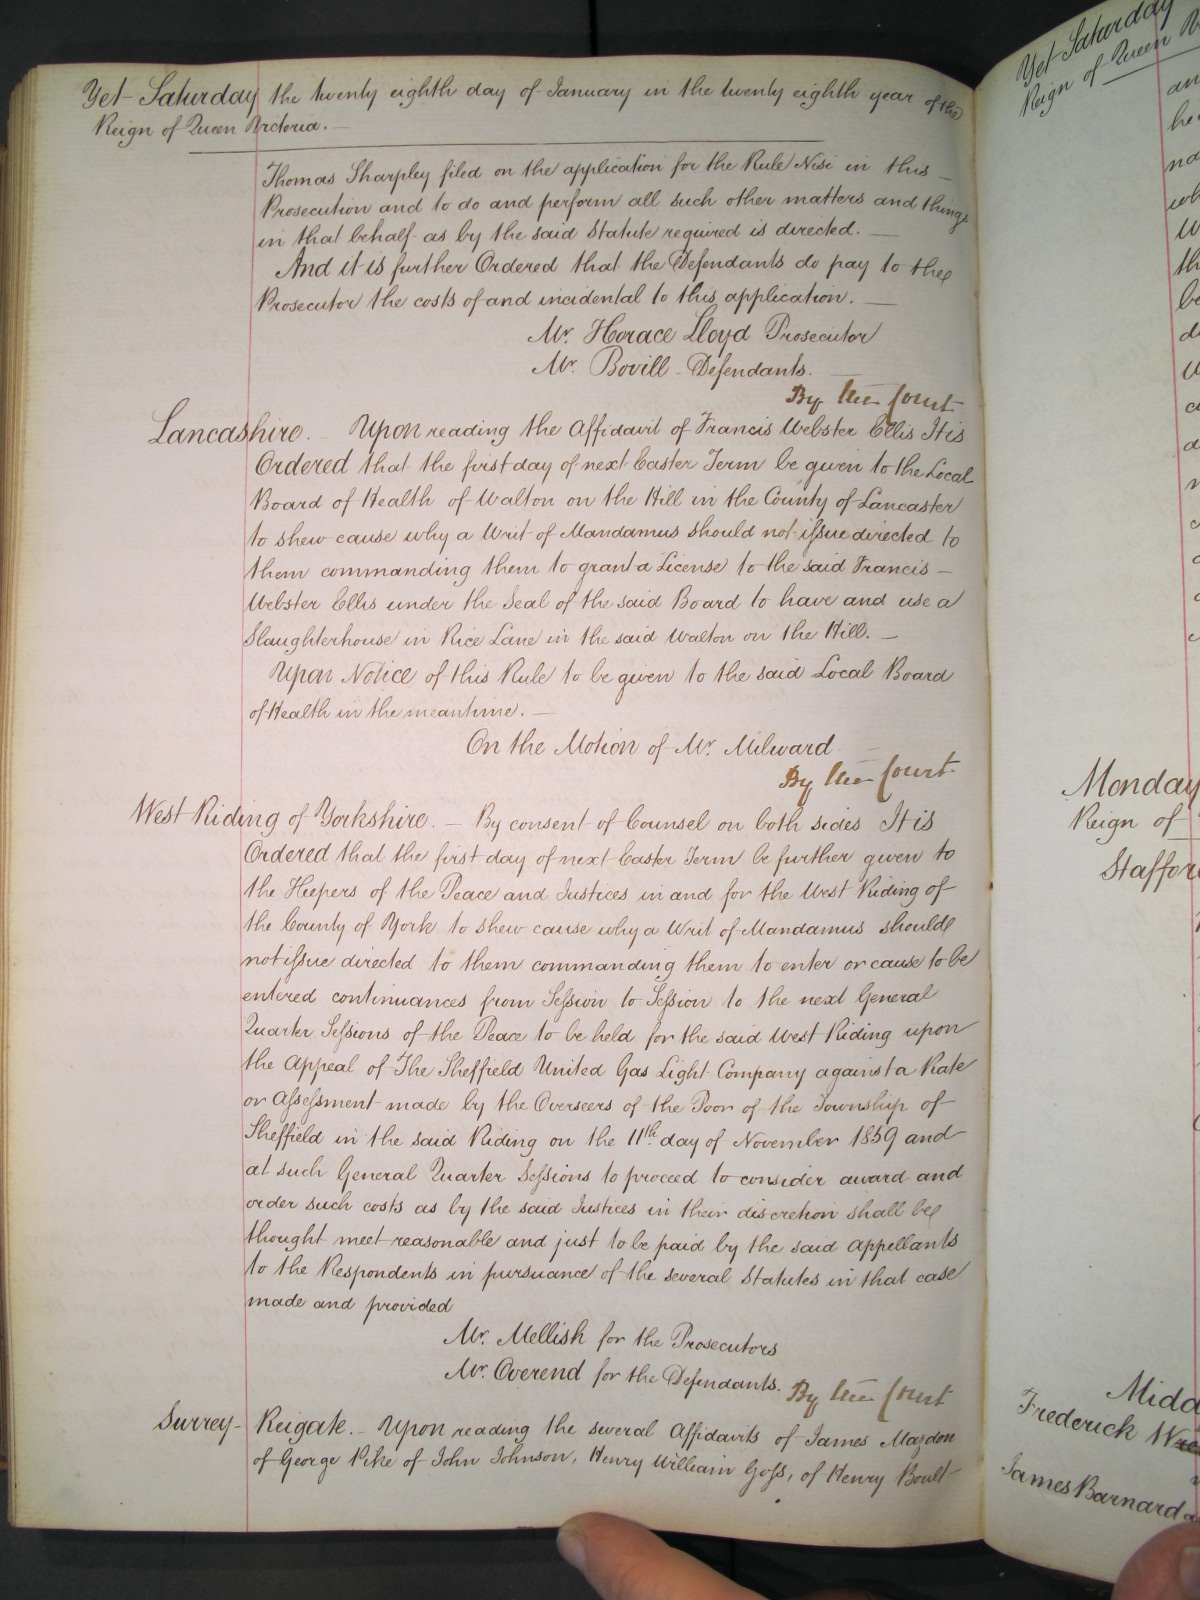 Yet Saturday the twenty eighth day of January in the twenty eighth year of the
Reign of Queen Victoria.
Thomas Sharpley filed on the application for the Rule Nisi in this
Prosecution and to do and perform all such other matters and things
in that behalf as by the said Statute required is directed.
And it is further Ordered that the Defendants do pay to the
Prosecutor the costs of and incidental to this application.
Mr. Horace Lloyd Prosecutor
Mr. Bovill - Defendants.
By the Court
Lancashire. - Upon reading the Affidavit of Francis Webster Ellis It is
Ordered that the first day of next Easter Term be given to the Local
Board of Health of Walton on the Hill in the County of Lancaster
to shew cause why a Writ of Mandamus should not issue directed to
them commanding them to grant a License to the said Francis -
Webster Ellis under the Seal of the said Board to have and use a
Slaughterhouse in Rice Lane in the said Walton on the Hill. -
Upon Notice of this Rule to be given to the said Local Board
of Health in the meantime. -
On the Motion of Mr. Milward
By the Court
West Riding of Yorkshire. - By consent of Counsel on both sides It is
Ordered that the first day of next Easter Term be further given to
the Keepers of the Peace and Justices in and for the West Riding of
the County of York to shew cause why a Writ of Mandamus should
not issue directed to them commanding them to enter or cause to be
entered continuances from Session to Session to the next General
Quarter Sessions of the Peace to be held for the said West Riding upon
the Appeal of The Sheffield United Gas Light Company against a Rate
or Assessment made by the Overseers of the Poor of the Township of
Sheffield in the said Riding on the 11th. day of November 1859 and
at such General Quarter Sessions to proceed to consider award and
order such costs as by the said Justices in their discretion shall be
thought meet reasonable and just to be paid by the said Appellants
to the Respondents in pursuance of the several Statutes in that case
made and provided
Mr. Mellish for the Prosecutors
Mr. Overend for the Defendants.
By the Court
Surrey - Reigate. - Upon reading the several Affidavits of James Mazdon
of George Pike of John Johnson, Henry William Goss, of Henry Boult
Yet Saturday
Reign of Queen
Monday
Reign of
Staffor
Midd
Frederick
James Barnard